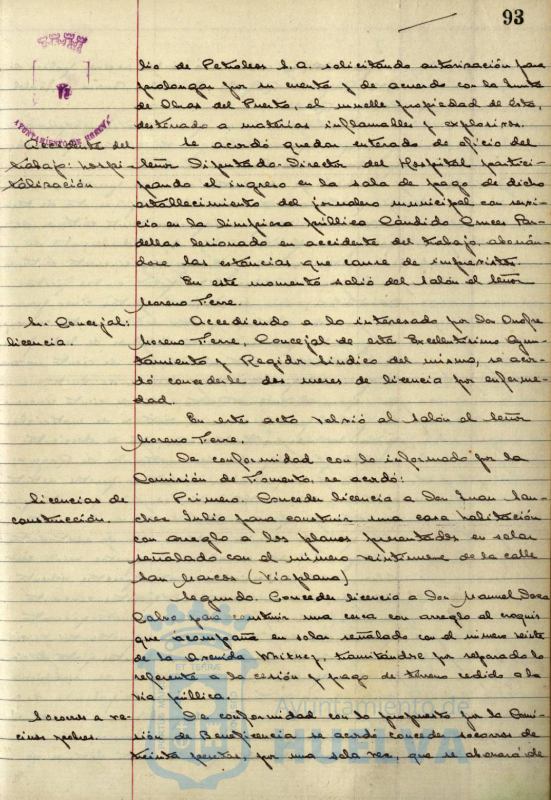 93
AYUNTAMIENTO DE HUELVA
lio de Petroleos S.A. solicitando autorización para
prolongar por su cuenta y de acuerdo con la Junta
de Obras del Puerto, el muelle propiedad de ésta,
destinado a materias inflamables y explosivos.
Accidente del
trabajo: hospi-
talización
Se acordó quedar enterado de oficio del
Señor Diputado-Director del Hospital partici-
pando el ingreso en la sala de pago de dicho
establecimiento del jornalero municipal con servi-
cio en la limpieza pública Cándido Cruces
lesionado en accidente del trabajo, abonán-
dose las estancias que cause de imprevistos.
En este momento salió del Salón el Señor
Moreno Terre.
Sr. Concejal:
licencia.
Accediendo a lo interesado por Don Onofre
Moreno Terre, Concejal de este Excelentísimo Ayun-
tamiento y Regidor Síndico del mismo, se acor-
dó concederle dos meses de licencia por enferme-
dad.
En este acto volvió al salón el Señor
Moreno Terre.
De conformidad con lo informado por la
Comisión de Fomento, se acordó:
Licencias de
construcción.
Primero. Conceder licencia a Don Juan San-
chez Julio para construir una casa habitación
con arreglo a los planos presentados en solar
señalado con el número veintinueve de la calle
San Marcos (Viaplana)
Segundo. Conceder licencia a Don Manuel
Calvo para construir una cerca con arreglo al croquis
que acompaña en solar señalado con el número veinte
de la Avenida Whitney, tramitándose por separado lo
referente a la cesión y pago de terreno cedido a la
vía pública.
Socorros a ve-
cinos pobres.
De conformidad con lo propuesto por la Comi-
sión de Beneficencia se acordó conceder socorros de
treinta pesetas, por una sola vez, que abonará de
Ayuntamiento de
HUELVA